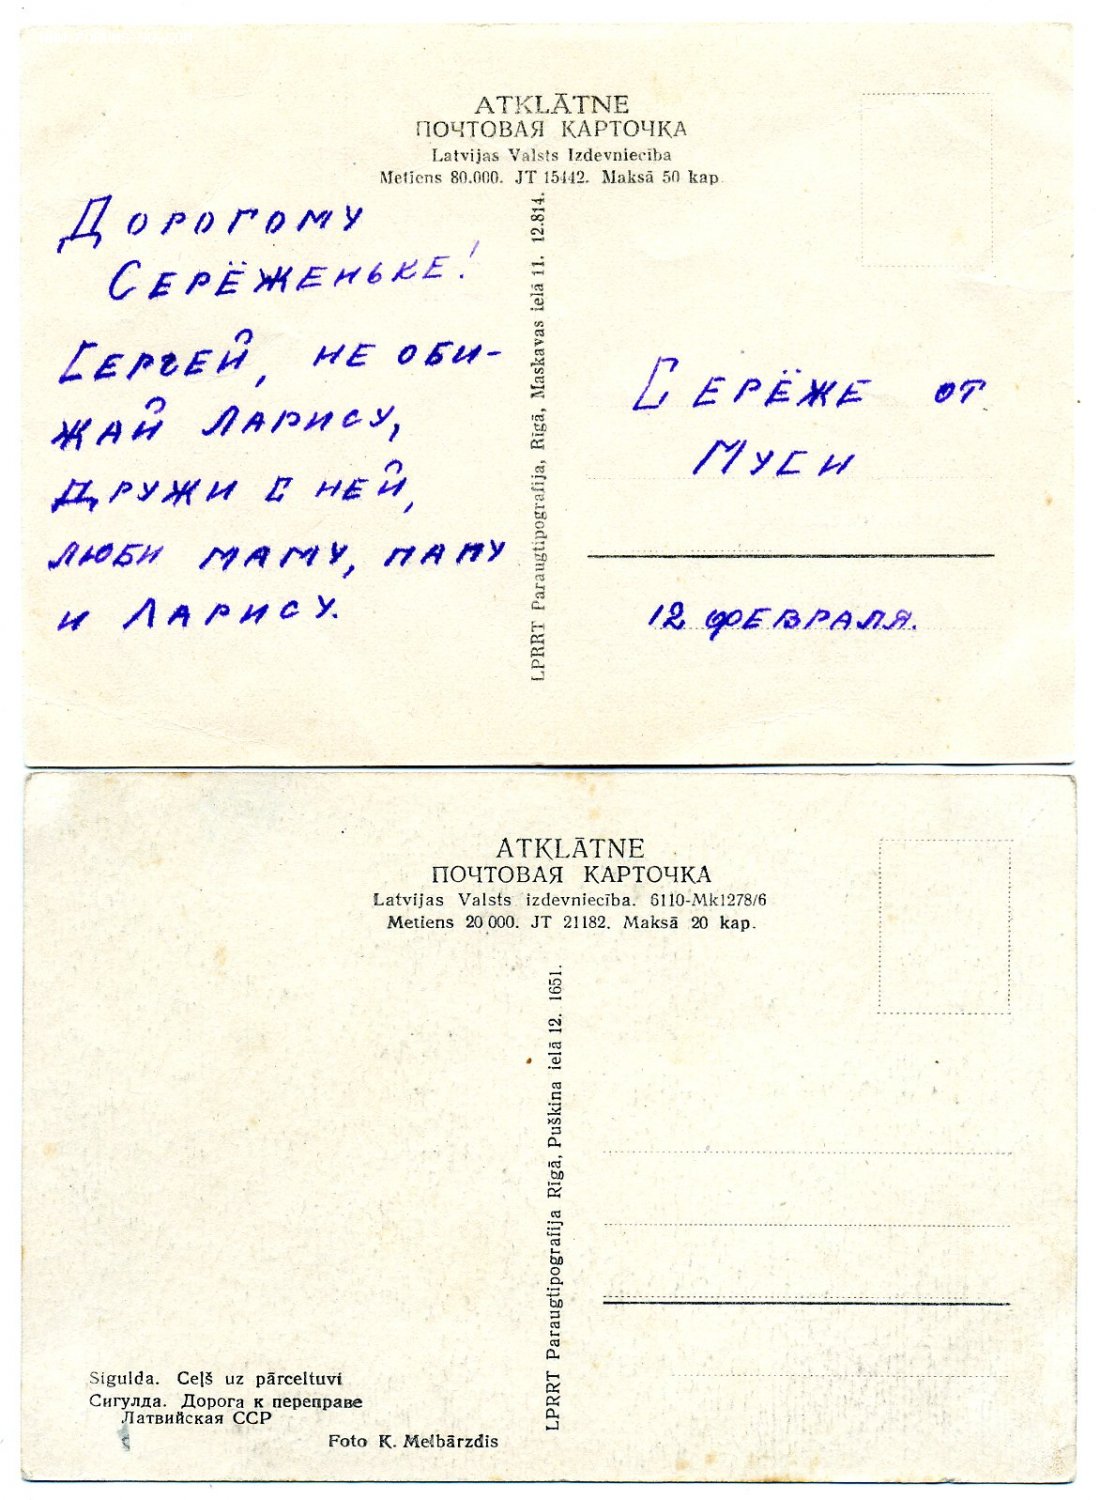 ATKLĀTNE
ПОЧТОВАЯ КАРТОЧКА
Latvijas Valsts Izdevniecība
Metiens 80.000. JT 15442. Maksā 50 kap.
Дорогому
Серёженьке!
Сергей, не оби-
жай Ларису,
дружи с ней,
люби маму, папу
и Ларису.
LPRRT Paraugtipografija, Rīgā, Maskavas ielā 11. 12.814.
Серёже от
Муси
12 февраля.
ATKLĀTNE
ПОЧТОВАЯ КАРТОЧКА
Latvijas Valsts izdevniecība. 6110-Mk1278/6
Metiens 20 000. JT 21182. Maksā 20 kap.
LPRRT Paraugtipografija Rīgā, Puškina ielā 12. 1651.
Sigulda. Ceļš uz pārceltuvi
Сигулда. Дорога к переправе
Латвийская ССР
Foto K. Melbārzdis